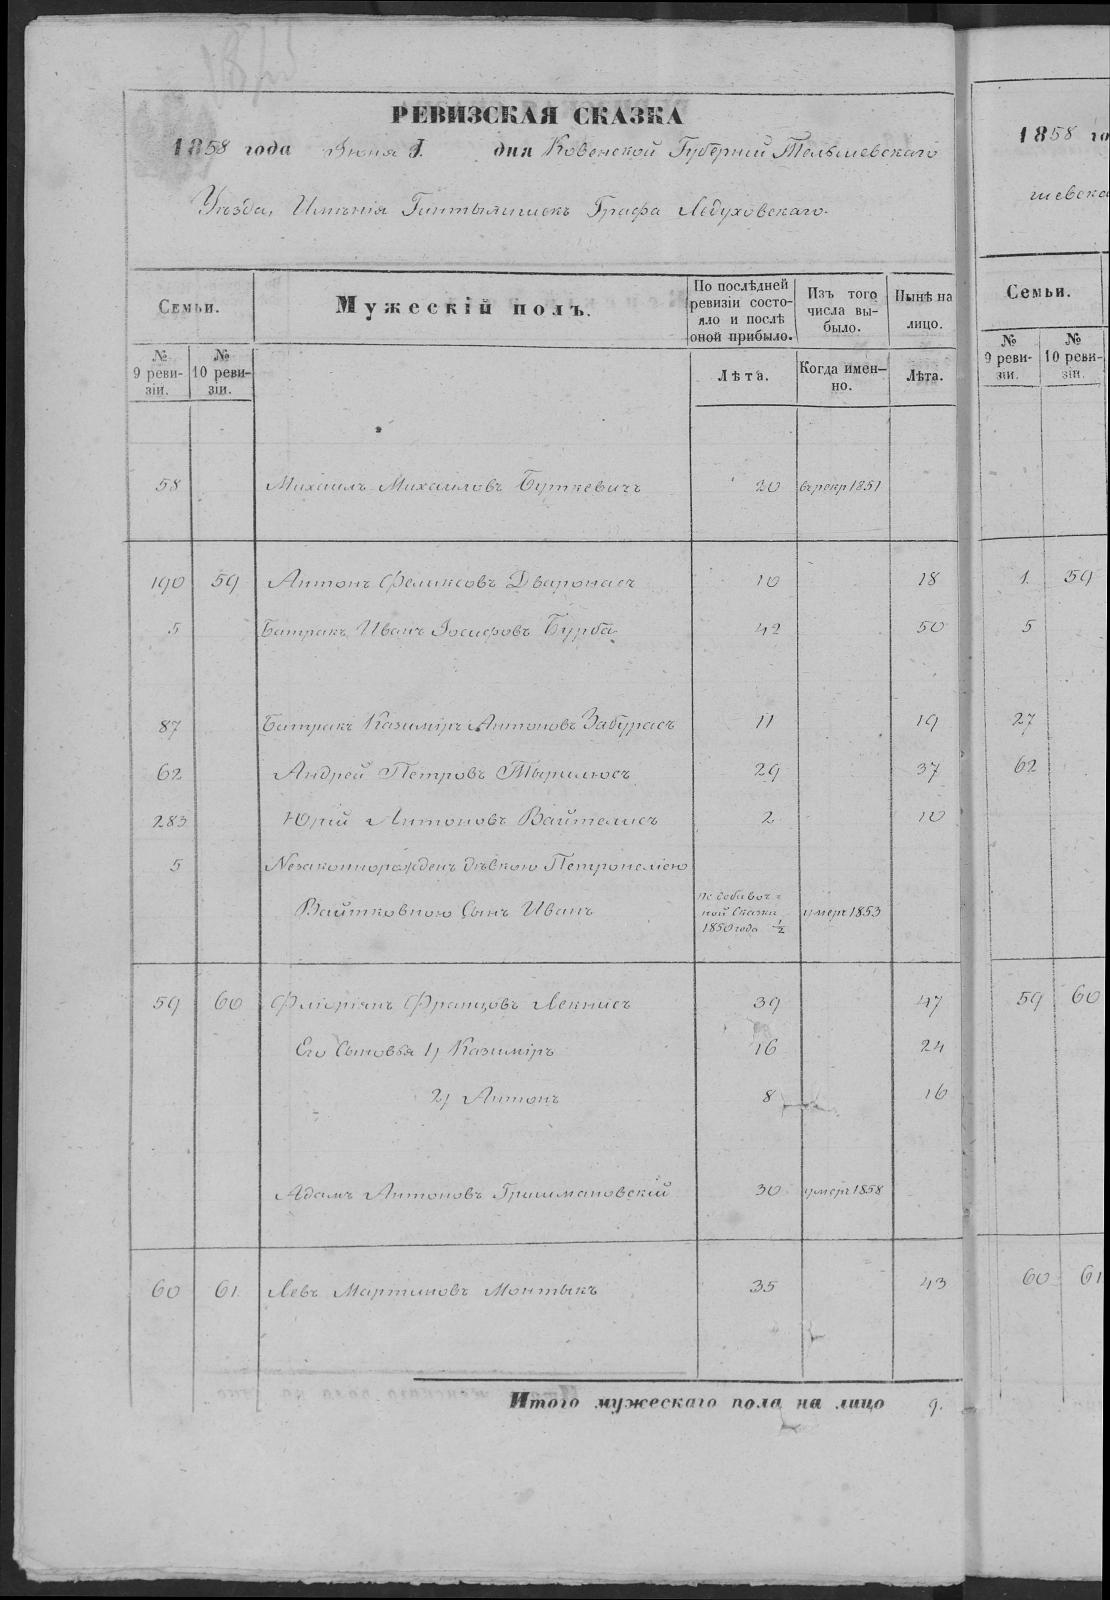 РЕВИЗСКАЯ СКАЗКА
1858 года Июня 1. дня Ковенской Губерніи Тельшевскаго
Уѣзда, Имѣнія Гинтылишекъ Графа Ледуховскаго.
Семьи.
Мужескій полъ.
По послѣдней ревизіи состо-
яло и послѣ оной прибыло.
Изъ того числа вы-
было.
Нынѣ на лицо.
№ 9 реви-
зіи.
№ 10 реви-
зіи.
Лѣта.
Когда имен-
но.
Лѣта.
58 Михаилъ Михаиловъ Буткевичъ 20 въ рекр 1851
190 59 Антонъ Феликсовъ Дваронасъ 10 18
5 Батракъ Иванъ Іосифовъ Бурба 42 50
87 Батракъ Казиміръ Антоновъ Забурасъ 11 19
62 Андрей Петровъ 29 37
283 Юрій Антоновъ Вайтелисъ 2 10
5 Незаконнорожденъ дѣвкою Петронелією
Вайтковною Сынъ Иванъ
ной Сказки
1850 года 1/2 умеръ 1853
59 60 Фліоріянъ Францовъ Лекнисъ 39 47
Его Сыновья 1) Казиміръ 16 24
2) Антонъ 8 16
Адамъ Антоновъ Гришмановскій 30 умеръ 1858
60 61 Левъ Мартиновъ Монтыкъ 35 43
Итого мужескаго пола на лицо 9.
1858 го
шевска
Семьи.
№ 9 реви-
зіи.
№ 10 реви-
зіи.
1. 59
5
27
62
59 60
60 61